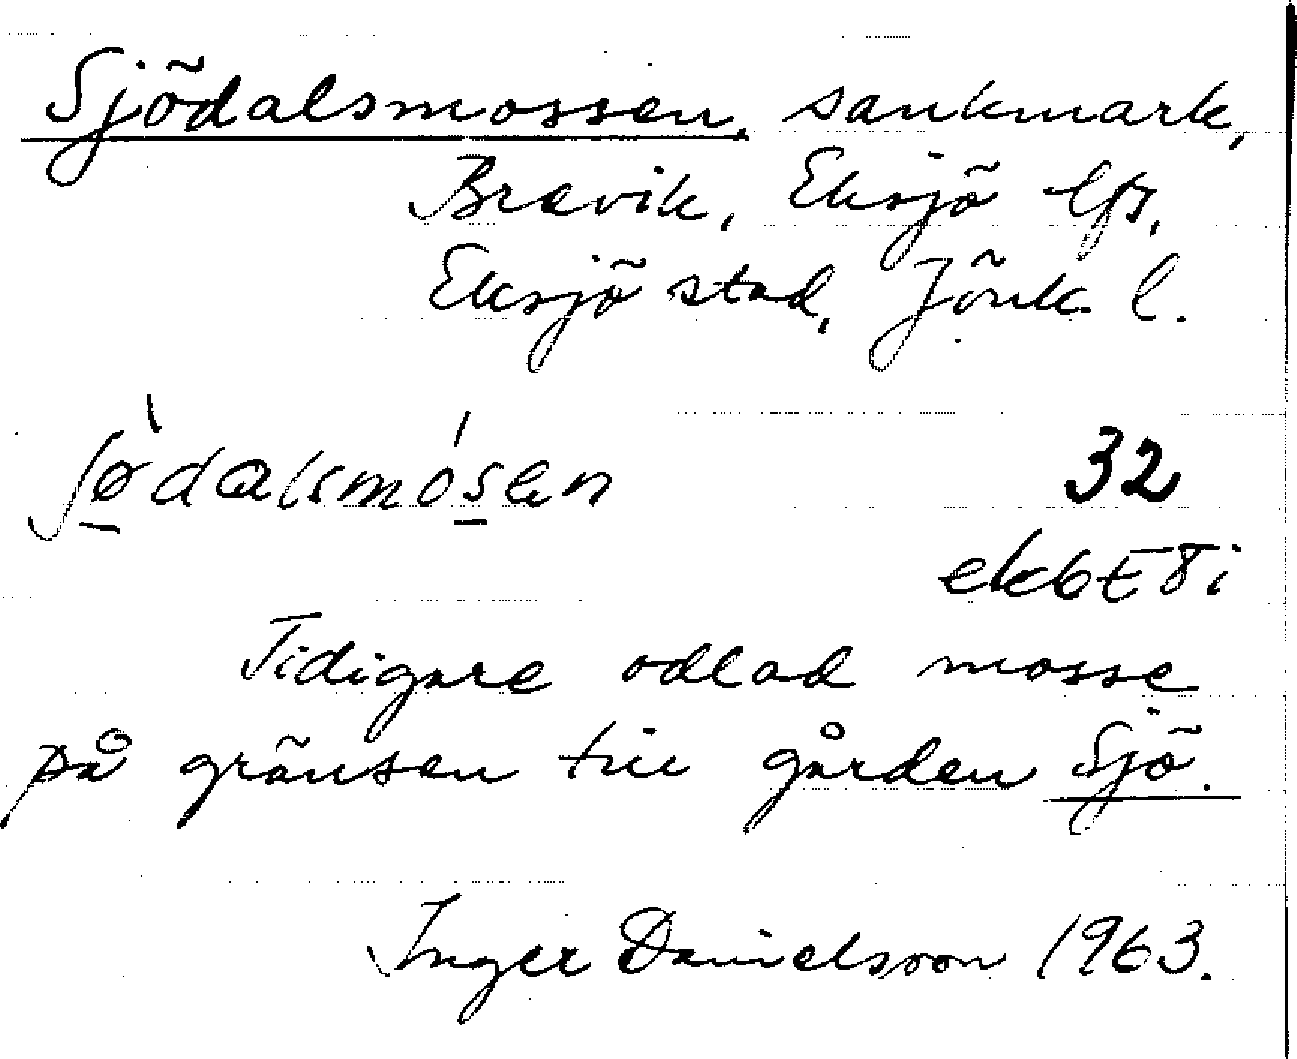 Sjödalsmossen, sankmark,
Bravik, Eksjö lfs,
Eksjö stad, Jönk. l.
ʃø̠̀dalsmós̠en
32
ek6E8i
Tidigare odlad mosse
på gränsen till gården Sjö.
Inger Danielsson 1963.